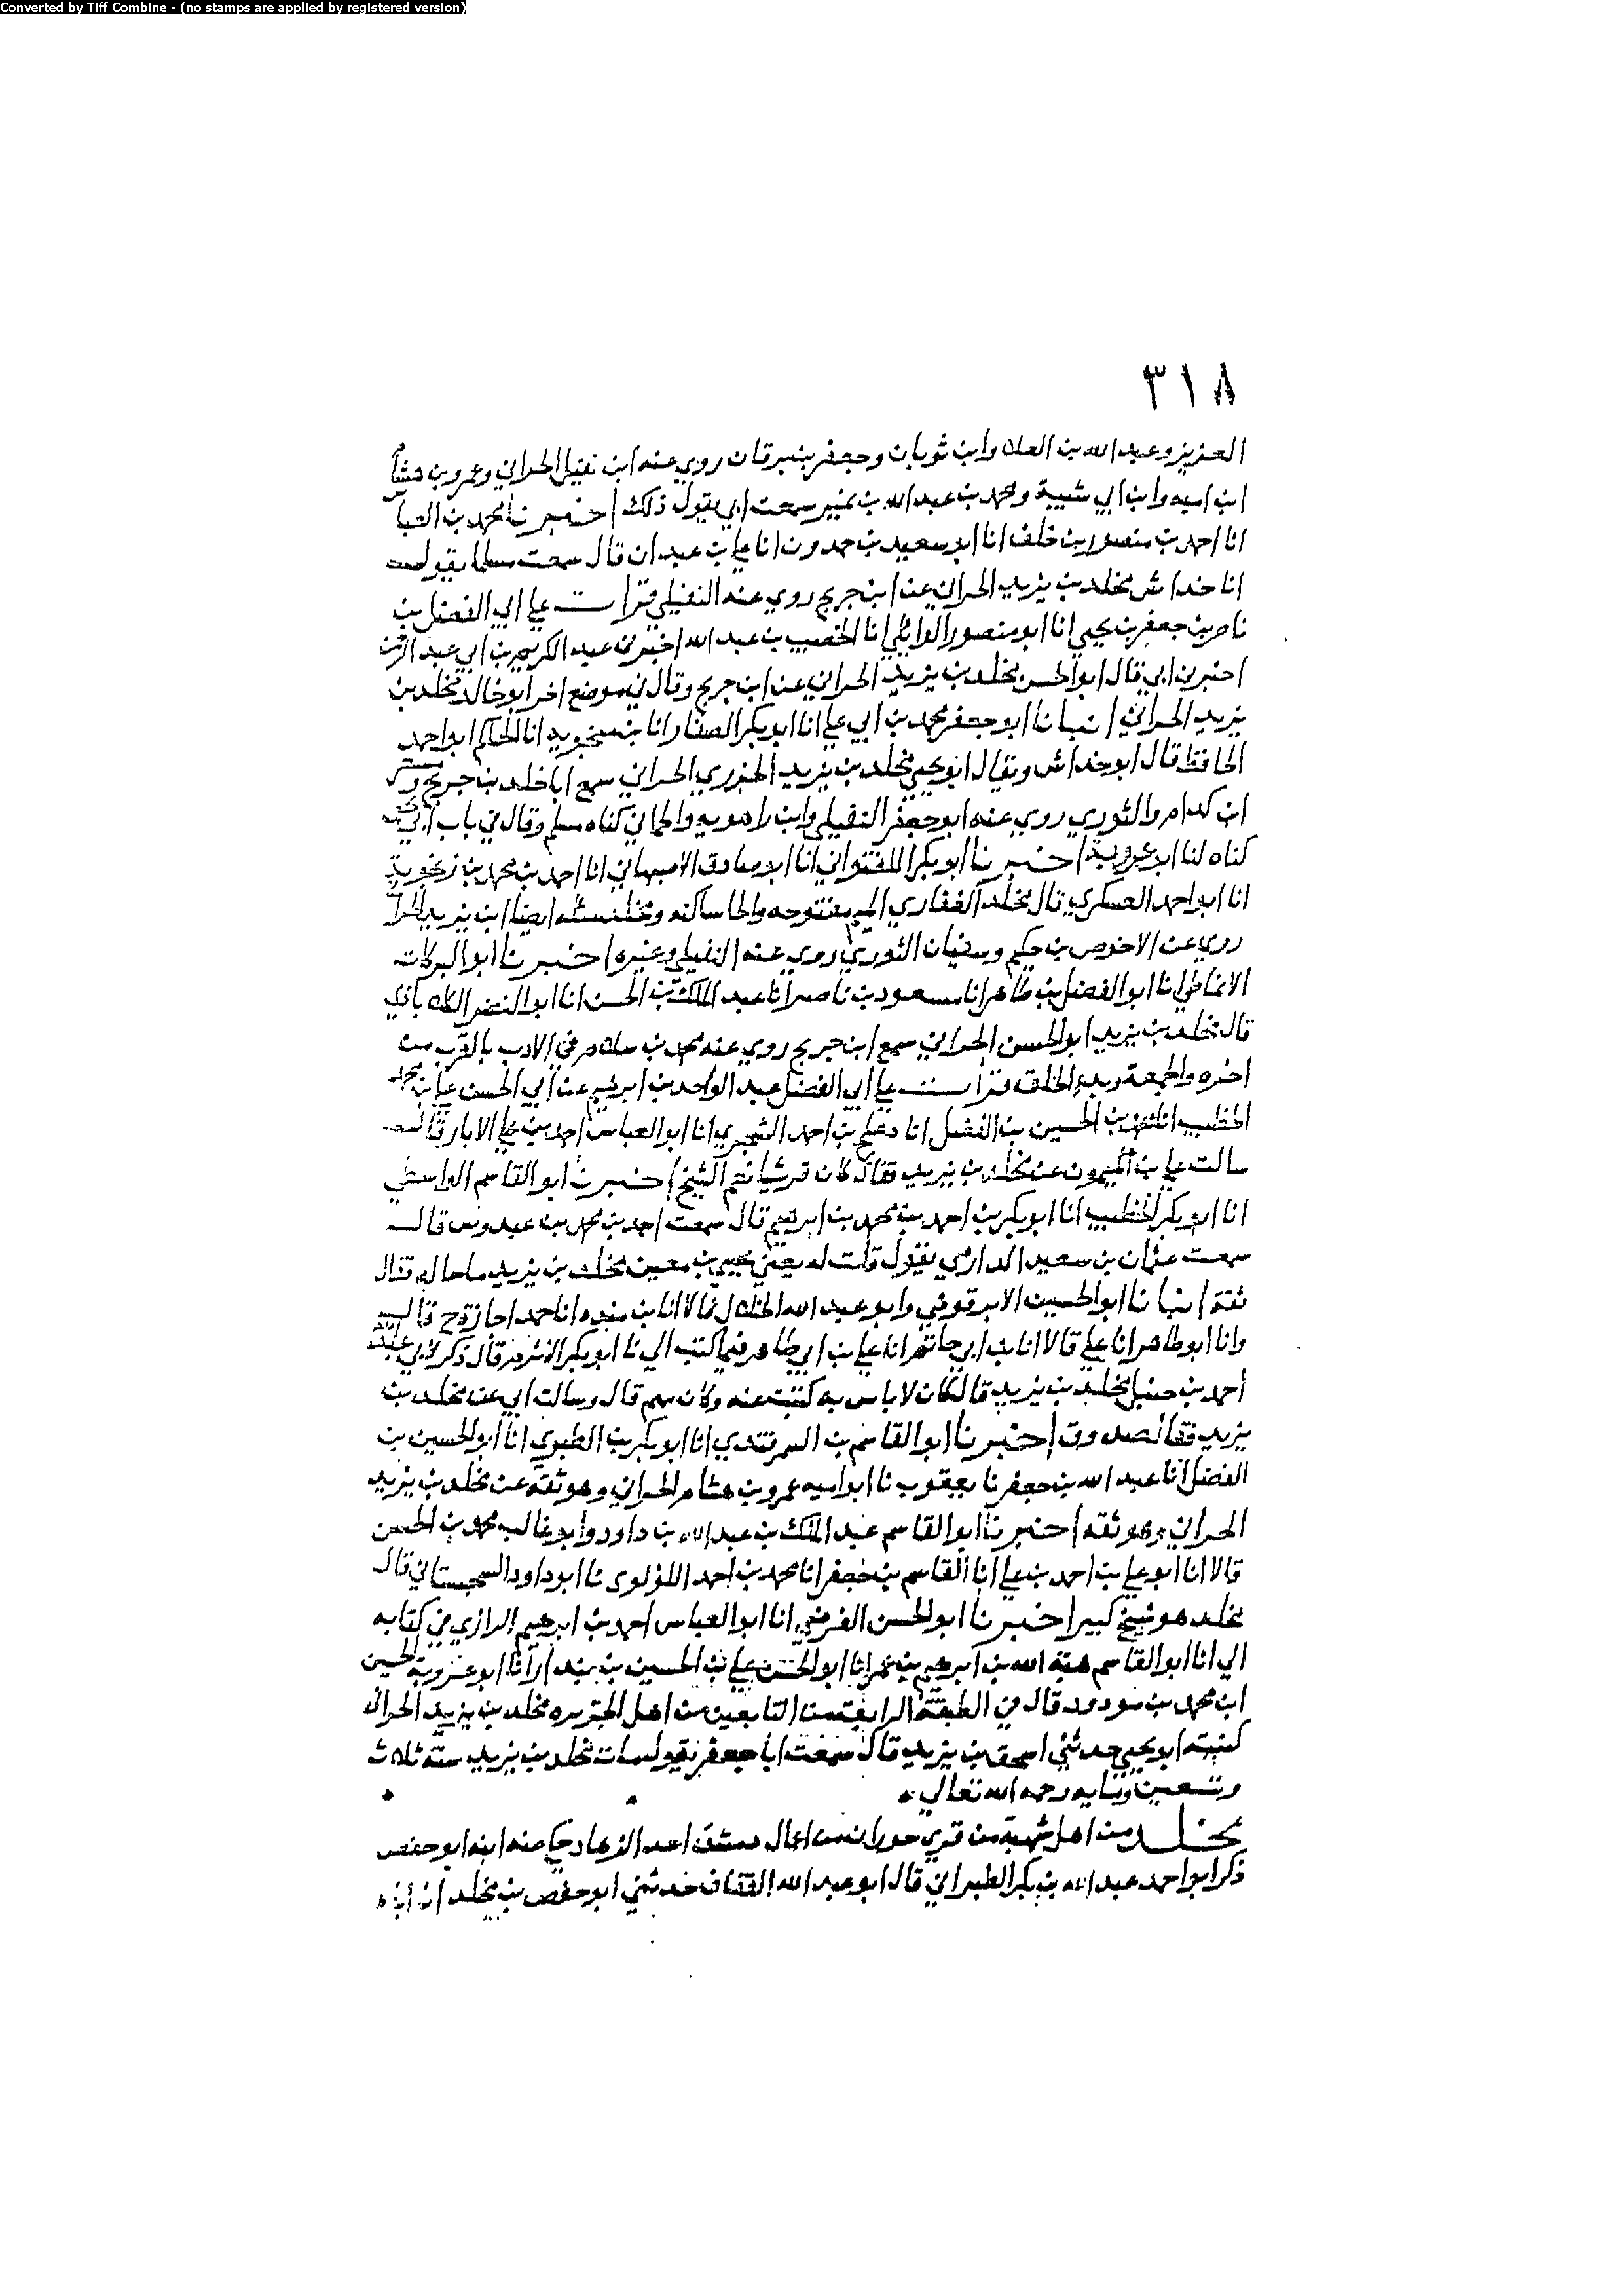 Converted by Tiff Combine - (no stamps are applied by registered version)
٣١٨
العزيز وعبد الله بن العلا وابن ثوبان وجعفر بن برقان روي عنه ابن نفيل الحراني وعمرو بن هشام
ابن اميه وابن ابي شيبة ومحمد بن عبد الله بن نمير سمعت ابي يقول ذلك اخبرنا محمد بن العباس
انا احمد بن منصور بن خلف انا ابو سعيد بن حمدون انا علي بن عبدان قال سمعت مسلما يقول
انا خداش مخلد بن يزيد الحراني عن ابن جريج روي عنه النفيلي قرات علي ابي الفضل بن
ناصر بن جعفر بن يحيي انا ابو منصور الوايلي انا الخصيب بن عبد الله اخبرني عبد الكريم بن ابي عبد الرحمن
اخبرني ابي قال ابو الحسن مخلد بن يزيد الحراني عن ابن جريج وقال في موضع اخر ابو خالد مخلد بن
يزيد الحراني انبانا ابو جعفر محمد بن ابي علي انا ابو بكر الصفار انا بن منجويه انا الحاكم ابو احمد
الحافظ قال ابو خداش ويقال ابو يحيي مخلد بن يزيد الجزري الحراني سمع ابا خلد بن جريج ومسعر
ابن كدام والثوري روي عنه ابو جعفر النفيلي وابن راهويه والحماني كناه مسلم وقال في باب ابي يحيي
كناه لنا ابو عروبة اخبرنا ابو بكر اللفتواني انا ابو صادق الاصبهاني انا احمد بن محمد بن زنجويه
انا ابو احمد العسكري قال مخلد الغفاري الميم مفتوحه والخا ساكنه ومخلد مثله ايضا ابن يزيد الحراني
روي عن الاخوص بن حكيم وسفيان الثوري روي عنه النفيلي وغيره اخبرنا ابو البركات
الانماطي انا ابو الفضل بن طاهر انا مسعود بن ناصر انا عبد الملك بن الحسن انا ابو النضر الكلاباذي
قال مخلد بن يزيد ابو الحسن الحراني سمع ابن جريج روي عنه محمد بن سلام في الادب بالقرب من
اخره والجمعة وبدء الخلق قرات علي ابي الفضل عبد الواحد بن ابرهيم عن ابي الحسن علي بن محمد
الخطيب انا محمد بن الحسين بن الفضل انا دعلج بن احمد السجزي انا ابو العباس احمد بن علي الابار قال
سالت علي بن الميمون عن مخلد بن يزيد فقال كان قرشيا نعم الشيخ اخبرنا ابو القاسم الواسطي
انا ابو بكر الخطيب انا ابو بكر بن احمد بن محمد بن ابرهيم قال سمعت احمد بن محمد بن عبدوس قال
سمعت عثمان بن سعيد الدارمي يقول قلت له يعني يحيي بن معين مخلد بن يزيد ما حاله فقال
ثقة انبانا ابو الحسين الابرقوهي وابو عبد الله الخلال قالا انا بن منده انا حمد اجازة ح قال
وانا ابو طاهر انا علي قالا انا بن ابي حاتم انا علي بن ابي طاهر فيما كتب الي نا ابو بكر الاثرم قال ذكر لابي عبد الله
احمد بن حنبل مخلد بن يزيد قال كان لا باس به كتبت عنه وكان يهم قال وسالت ابي عن مخلد بن
يزيد فقال صدوق اخبرنا ابو القاسم بن السمرقندي انا ابو بكر بن الطبري انا ابو الحسين بن
الفضل انا عبد الله بن جعفر نا يعقوب نا ابو اميه عمرو بن هشام الحراني وهو ثقة عن مخلد بن يزيد
الحراني وهو ثقه اخبرنا ابو القاسم عبد الملك بن عبد الله بن داود وابو غالب محمد بن الحسن
قالا انا ابو علي بن احمد بن علي انا القاسم بن جعفر انا محمد بن احمد اللؤلوي نا ابو داود السجستاني قال
مخلد هو شيخ كبير اخبرنا ابو الحسن الفرضي انا ابو العباس احمد بن ابرهيم الرازي في كتابه
الي انا ابو القاسم هبة الله بن ابرهيم بن عمر انا ابو الحسن علي بن الحسين بن بندار انا ابو عروبة الحسين
ابن محمد بن مودود قال في الطبقة الرابعة من التابعين من اهل الجزيره مخلد بن يزيد الحراني
كنيته ابو يحيي حدثني اسحق بن يزيد قال سمعت ابا جعفر يقول مات مخلد بن يزيد سنة ثلاث
وتسعين وماية رحمه الله تعالي
مخلد من اهل شهبة من قري حوران من اعمال دمشق احد الزهاد حكي عنه ابنه ابو حفص
ذكر ابو احمد عبد الله بن بكر الطبراني قال ابو عبد الله القفاف حدثني ابو حفص بن مخلد ان اباه